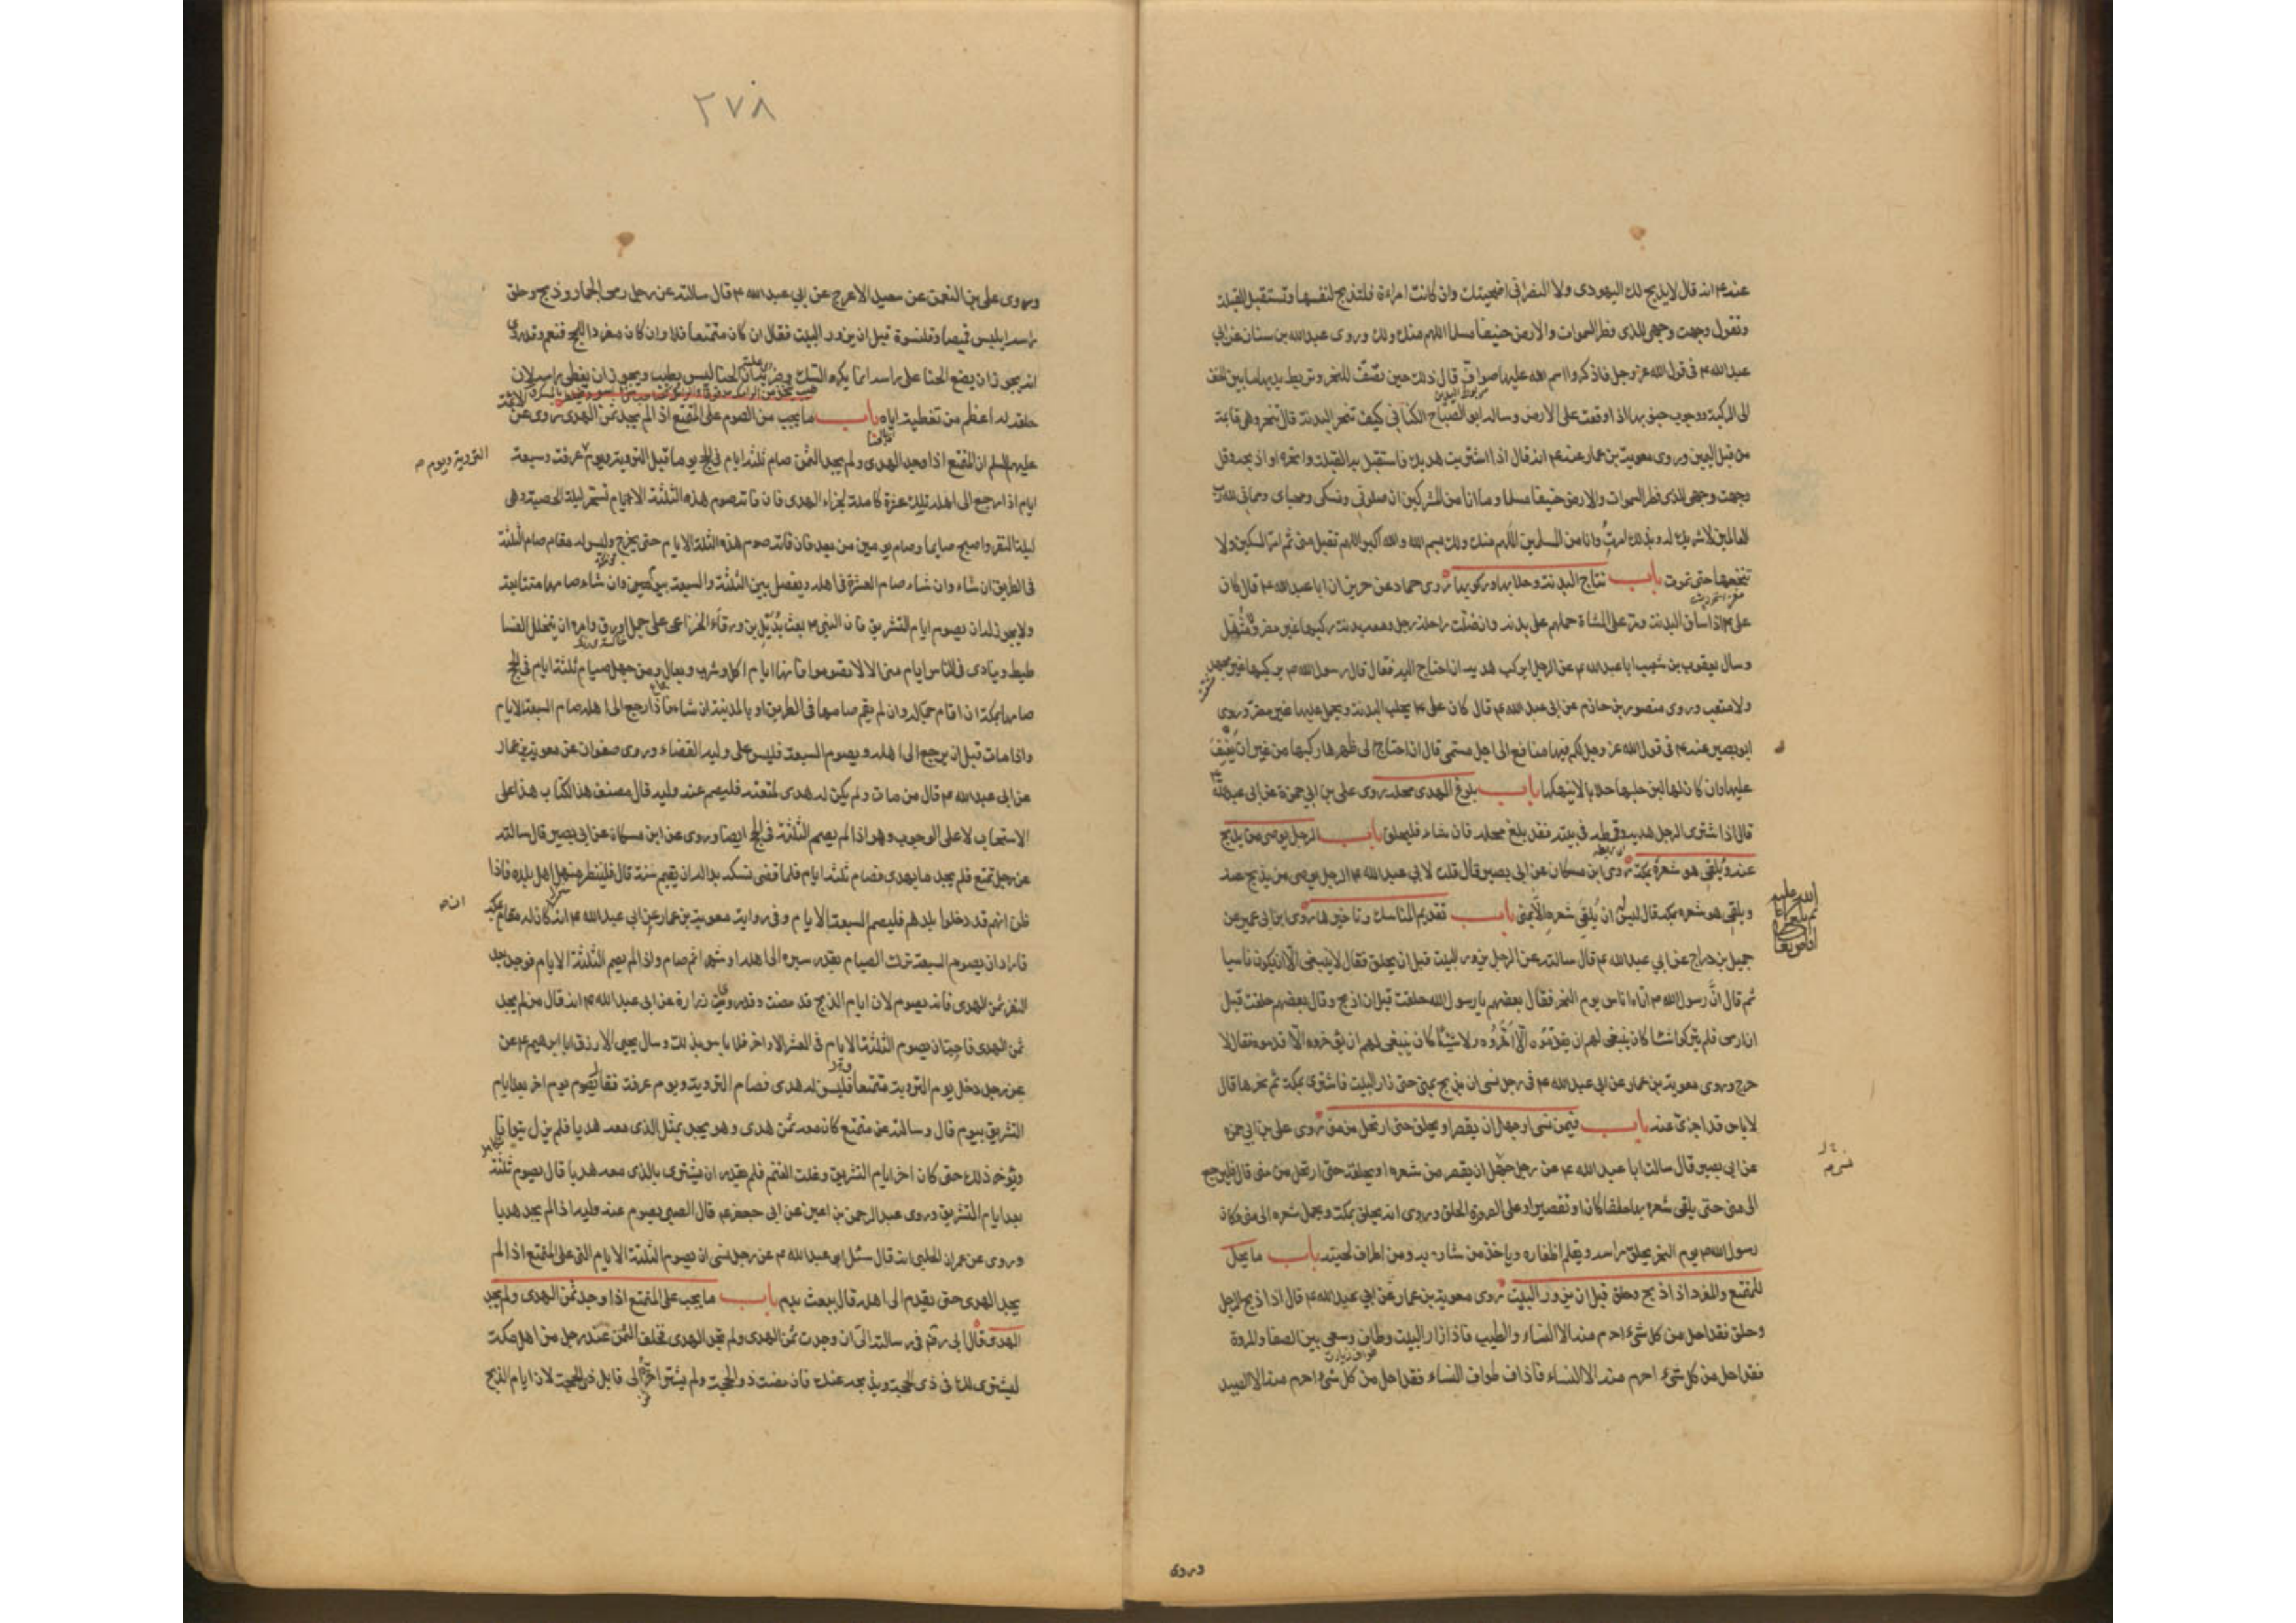 عنه ع انه قال لا يذبح لك اليهودى ولا النصرانى اضحيتك وان كانت امراءة فلتذبح لنفسها وتستقبل القبلة
وتقول وجهت وجهى للذى فطر السموات والارض حنيفا مسلما اللهم منك ولك وروى عبدالله بن سنان عن ابى
عبدالله ع فى قول الله عز وجل فاذكروا اسم الله عليها صواف قال ذلك حين تصف للنحر وتربط يديها ما بين الخف
الى الركبة ووجوب جنوبها اذا وقعت على الارض وساله ابو الصباح الكنانى كيف تنحر البدنة قال تنحر وهى قائمة
من قبل اليمين وروى معوية بن عمار عنه ع انه قال اذا اشتريت هديك فاستقبل به القبلة وانحره او اذبحه وقل
وجهت وجهى للذى فطر السموات والارض حنيفا مسلما وما انا من المشركين ان صلوتى ونسكى ومحياى ومماتى لله رب
العالمين لا شريك له وبذلك امرت وانا من المسلمين اللهم منك ولك بسم الله والله اكبر اللهم تقبل منى ثم امر السكين ولا
تنخعها حتى تموت باب نتاج البدنة وحلابها وركوبها روى حماد عن حريز ان ابا عبدالله ع قال كان
على ع اذا ساق البدنة ومر على المشاة حملهم على بدنه وان ضلت راحلة رجل ومعه بدنة ركبها غير مضر ولا مثقل
وسال يعقوب بن شعيب ابا عبدالله ع عن الرجل ايركب هديه ان احتاج اليه فقال قال رسول الله ص يركبها غير مجهد
ولا متعب وروى منصور بن حازم عن ابى عبدالله ع قال كان على ع يحلب البدنة ويحمل عليها غير مضر وروى
ابو بصير عنه ع فى قول الله عز وجل لكم فيها منافع الى اجل مسمى قال ان احتاج الى ظهرها ركبها من غير ان يعنف
عليها وان كان لها لبن حلبها حلابا لا ينهكها باب بلوغ الهدى محله روى على بن ابى حمزة عن ابى عبدالله
قال اذا اشترى الرجل هديه وقمطه فى بيته فقد بلغ محله فان شاء فليحلق باب الرجل يوصى من يذبح
عنه ويلقى هو شعره بمكة روى ابن مسكان عن ابى بصير قال قلت لابى عبدالله ع الرجل يوصى من يذبح عنه
ويلقى هو شعره بمكة قال ليس له ان يلقى شعره الا بمنى باب تقديم المناسك وتاخيرها روى ابن ابى عمير عن
جميل بن دراج عن ابى عبدالله ع قال سالته عن الرجل يزور البيت قبل ان يحلق فقال لا ينبغى الا ان يكون ناسيا
ثم قال ان رسول الله ص اتاه اناس يوم النحر فقال بعضهم يا رسول الله حلقت قبل ان اذبح وقال بعضهم حلقت قبل
ان ارمى فلم يتركوا شيئا كان ينبغى لهم ان يقدموه الا اخروه ولا شيئا كان ينبغى لهم ان يؤخروه الا قدموه فقال لا
حرج وروى معوية بن عمار عن ابى عبدالله ع فى رجل نسى ان يذبح بمنى حتى زار البيت فاشترى بمكة ثم نحرها قال
لا باس قد اجزئ عنه باب فيمن نسى او جهل ان يقصر او يحلق حتى ارتحل من منى روى على بن ابى حمزه
عن ابى بصير قال سالت ابا عبدالله ع عن رجل جهل ان يقصر من شعره او يحلقه حتى ارتحل من منى قال فليرجع
الى منى حتى يلقى شعره بها حلقا كان او تقصيرا وعلى الصرورة الحلق وروى انه يحلق بمكة ويحمل شعره الى منى وكان
رسول الله ص يوم النحر يحلق راسه ويقلم اظفاره وياخذ من شاربه ومن اطراف لحيته باب ما يحل
للمتمتع والمفرد اذا ذبح وحلق قبل ان يزور البيت روى معوية بن عمار عن ابى عبدالله ع قال اذا ذبح الرجل
وحلق فقد احل من كل شئ احرم منه الا النساء والطيب فاذا زار البيت وطاف وسعى بين الصفا والمروة
فقد احل من كل شئ احرم منه الا النساء فاذا طاف طواف النساء فقد احل من كل شئ احرم منه الا الصيد
وروى
٢٧٨
وروى على بن النعمن عن سعيد الاعرج عن ابى عبدالله ع قال سالته عن رجل رمى الجمار وذبح وحلق
راسه ايلبس قميصا وقلنسوة قبل ان يزور البيت فقال ان كان متمتعا فلا وان كان مفردا للحج فنعم وقد روى
انه يجوز ان يضع الحنا على راسه انما يكره السك وضربه ان الحنا ليس بطيب ويجوز ان يغطى راسه لان
حلقه له اعظم من تغطيته اياه باب ما يجب من الصوم على المتمتع اذا لم يجد ثمن الهدى روى عن
عليهم السلم ان المتمتع اذا وجد الهدى ولم يجد الثمن صام ثلثة ايام فى الحج يوما قبل التروية ويوم عرفة وسبعة
التروية ويوم
ايام اذا رجع الى اهله تلك عشرة كاملة لجزاء الهدى فان فاته صوم هذه الثلثة الايام تسحر ليلة الحصبة وهى
ليلة النفر واصبح صايما وصام يومين من بعد فان فاته صوم هذه الثلثة الايام حتى يخرج وليس له مقام صام الثلثة
فى الطريق ان شاء وان شاء صام العشرة فى اهله ويفصل بين الثلثة والسبعة بيوم وان شاء صامها متتابعة
ولا يجوز له ان يصوم ايام التشريق فان النبى ص بعث بديل بن ورقاء الخزاعى على جمل اورق وامره ان يتخلل الفسا
طيط وينادى فى الناس ايام منى الا لا تصوموا فانها ايام اكل وشرب وبعال ومن جهل صيام ثلثة ايام فى الحج
صامها بمكة ان اقام جماله وان لم يقم صامها فى الطريق او بالمدينة ان شاء فاذا رجع الى اهله صام السبعة الايام
واذا مات قبل ان يرجع الى اهله ويصوم السبعة فليس على وليه القضاء وروى صفوان عن معوية بن عمار
عن ابى عبدالله ع قال من مات ولم يكن له هدى لمتعته فليصم عنه وليه قال مصنف هذا الكتاب هذا على
الاستحباب لا على الوجوب وهو اذا لم يصم الثلثة فى الحج ايضا وروى عن ابن مسكان عن ابى بصير قال سالته
عن رجل تمتع فلم يجد ما يهدى فصام ثلثة ايام فلما قضى نسكه بدا له ان يقيم سنة قال فلينتظر منهل اهل بلده فاذا
ظن انهم قد دخلوا بلدهم فليصم السبعة الايام وفى رواية معوية بن عمار عن ابى عبدالله ع انه كان له مقام بمكة
فاراد ان يصوم السبعة ترك الصيام بقدر سيره الى اهله او شهرا ثم صام واذا لم يصم الثلثة الايام فوجد بعد
النفر ثمن الهدى فانه يصوم لان ايام الذبح قد مضت وقد روى زرارة عن ابى عبدالله ع انه قال من لم يجد
ثمن الهدى فاحب ان يصوم الثلثة الايام فى العشر الاواخر فلا باس بذلك وسال يحيى الازرق ابا ابرهيم ع عن
عن رجل دخل يوم التروية متمتعا فليس له هدى فصام التروية ويوم عرفة فقال يصوم يوم اخر بعد ايام
التشريق بيوم قال وسالته عن متمتع كان معه ثمن هدى وهو يجد بمثل الذى معه هديا فلم يزل يتوانا
ويؤخر ذلك حتى كان اخر ايام التشريق وغلت الغنم فلم يقدر ان يشترى بالذى معه هديا قال يصوم ثلثة
بعد ايام التشريق وروى عبدالرحمن بن اعين عن ابى جعفر ع قال الصبى يصوم عنه وليه اذا لم يجد هديا
وروى عن عمران الحلبى انه قال سئل ابو عبدالله ع عن رجل نسى ان يصوم الثلثة الايام التى على المتمتع اذا لم
يجد الهدى حتى يقدم الى اهله قال يبعث بدم باب ما يجب على المتمتع اذا وجد ثمن الهدى ولم يجد
الهدى قال ابى رض فى رسالته الى ان وجدت ثمن الهدى ولم تجد الهدى فخلف الثمن عند رجل من اهل مكة
ليشترى لك فى ذى الحجة ويذبحه عنك فان مضت ذو الحجة ولم يشتر اخره الى قابل ذى الحجة لان ايام الذبح